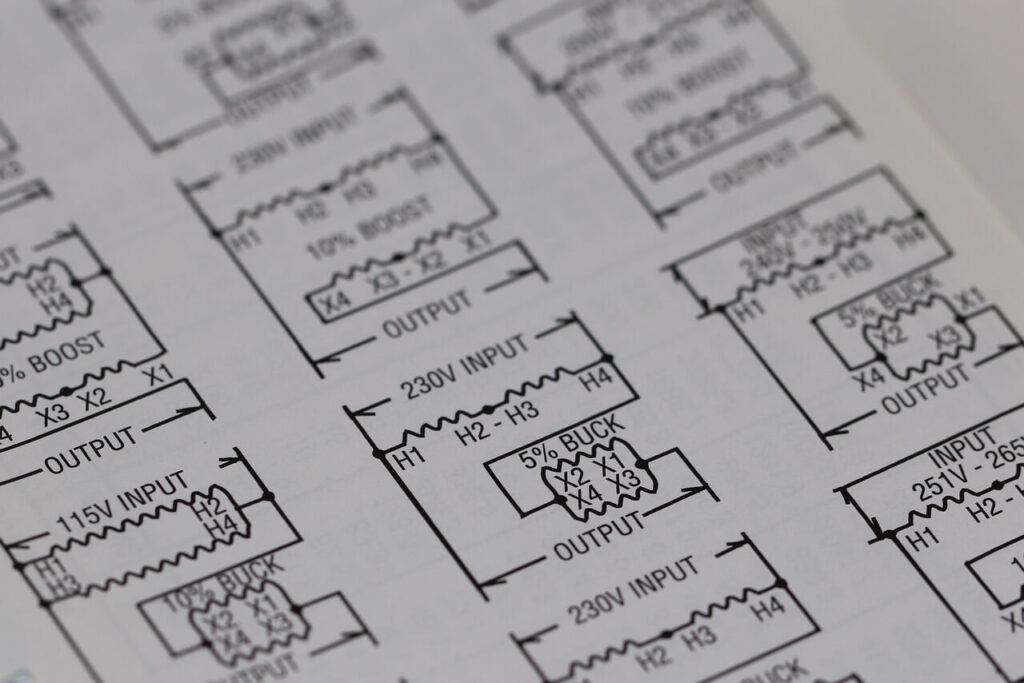 OUTPUT
230V INPUT
H1 H2 H3 H4
10% BOOST
X4 X3 - X2 X1
OUTPUT
10% BOOST
H1 H2 - H3 H4
X4 X3 - X2 X1
OUTPUT
H2
H4
BOOST
X3 X2 X1
OUTPUT
230V INPUT
H1 H2 - H3 H4
5% BUCK
X2 X1
X4 X3
OUTPUT
INPUT
240V - 250V
H1 H2 - H3 H4
5% BUCK
X2 X1
X4 X3
OUTPUT
115V INPUT
H1 H2
H3 H4
10% BUCK
X2 X1
X4 X3
OUTPUT
230V INPUT
H2 H3 H4
BUCK
INPUT
251V - 265
H1 H2 -